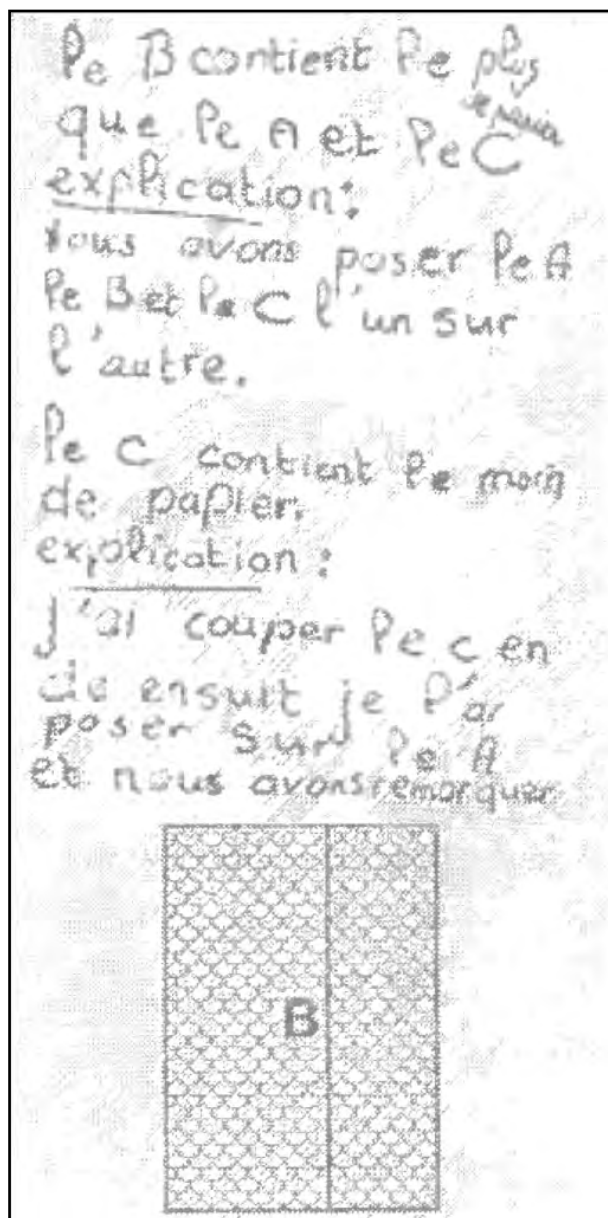 le B contient le plus
de papier
que le A et le C
explication:
nous avons poser le A
le B et le C l'un sur
l'autre.
le C contient le moin
de papier.
explication:
j'ai couper le c en
de ensuit je l'ai
poser sur le A
et nous avons remarquer
B